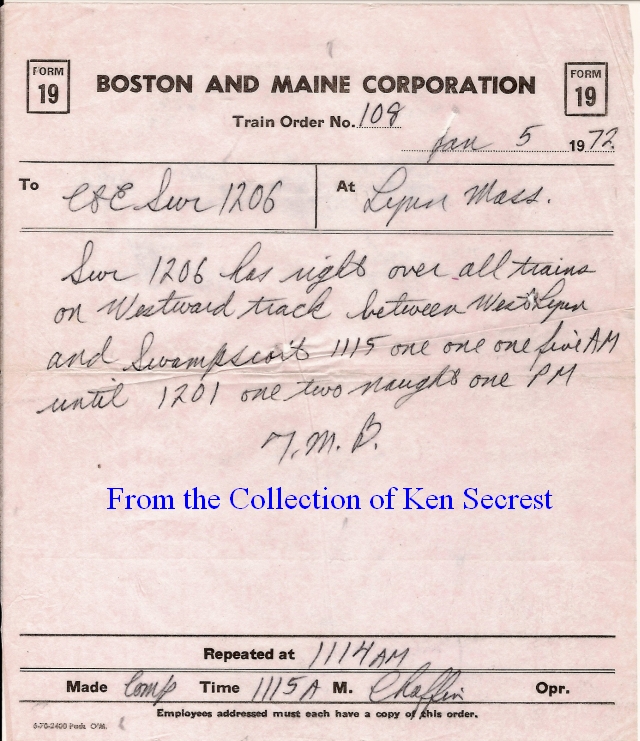 FORM 19
BOSTON AND MAINE CORPORATION
FORM 19
Train Order No. 108
Jan 5 1972
To C&E Swr 1206
At Lynn Mass.
Swr 1206 has right over all trains
on Westward track between West Lynn
and Swampscott 1115 one one one five AM
until 1201 one two naught one PM
T.M.B.
From the Collection of Ken Secrest
Repeated at 1114 AM
Made Comp Time 1115 A M. Chaffin Opr.
Employees addressed must each have a copy of this order.